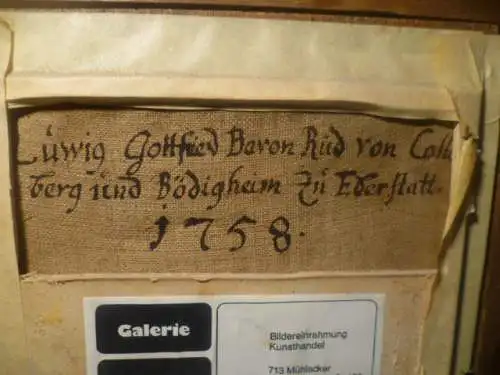 Lúwig Gottfried Baron Rüd von Coll
berg ünd Bödigheim Zú Eberstatt.
1758.
Galerie
Bildereinrahmung
Kunsthandel
713 Mühlacker